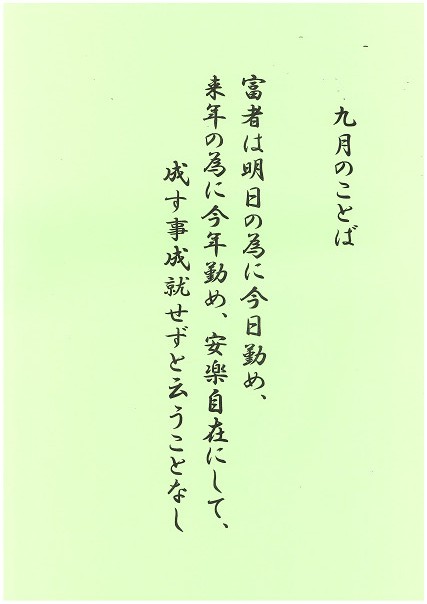 九月のことば
富者は明日の為に今日勤め、
来年の為に今年勤め、安楽自在にして、
成す事成就せずと云うことなし